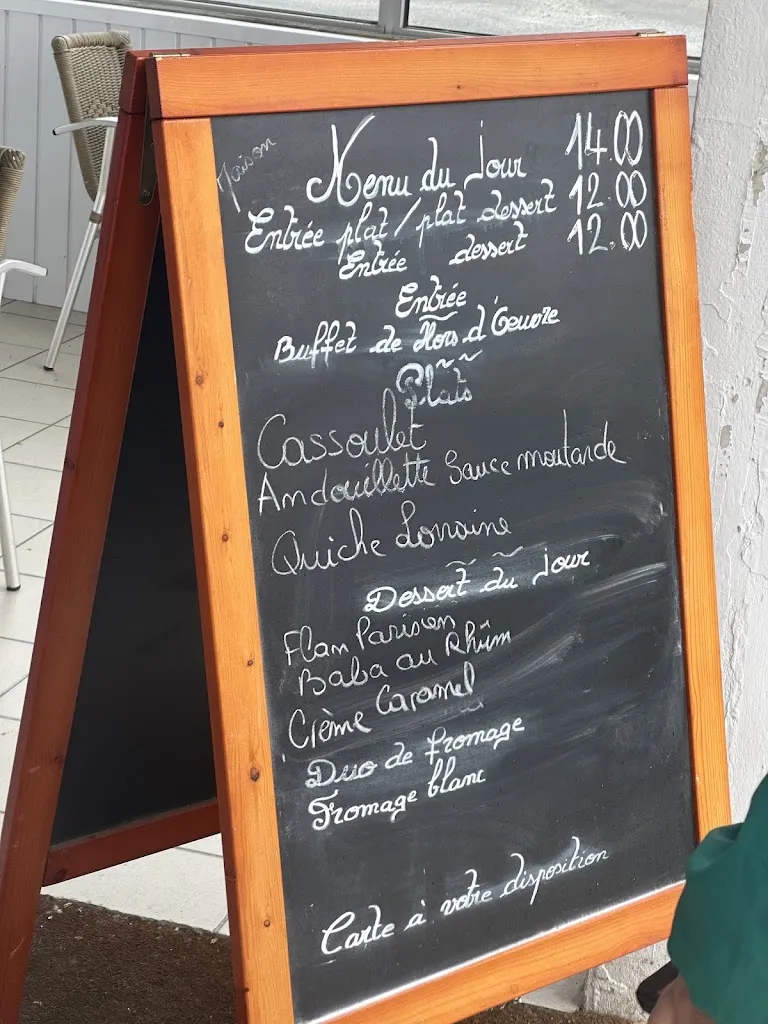 Maison
Menu du Jour 14.00
Entrée plat / plat dessert 12.00
Entrée dessert 12.00
Entrée
Buffet de Hors d'Oeuvre
Plats
Cassoulet
Andouillette Sauce moutarde
Quiche Lorraine
Dessert du Jour
Flan Parisien
Baba au Rhûm
Crème Caramel
Duo de fromage
Fromage blanc
Carte à votre disposition